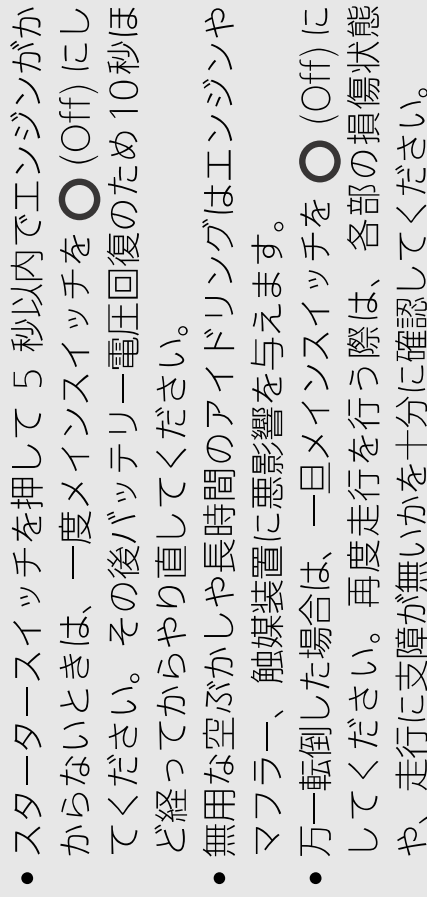 ● スタータースイッチを押して 5 秒以内でエンジンがか
からないときは、一度メインスイッチを ○ (Off) にし
てください。その後バッテリー電圧回復のため 10 秒ほ
ど経ってからやり直してください。
● 無用な空ぶかしや長時間のアイドリングはエンジンや
マフラー、触媒装置に悪影響を与えます。
● 万一転倒した場合は、一旦メインスイッチを ○ (Off) に
してください。再度走行を行う際は、各部の損傷状態
や、走行に支障が無いかを十分に確認してください。